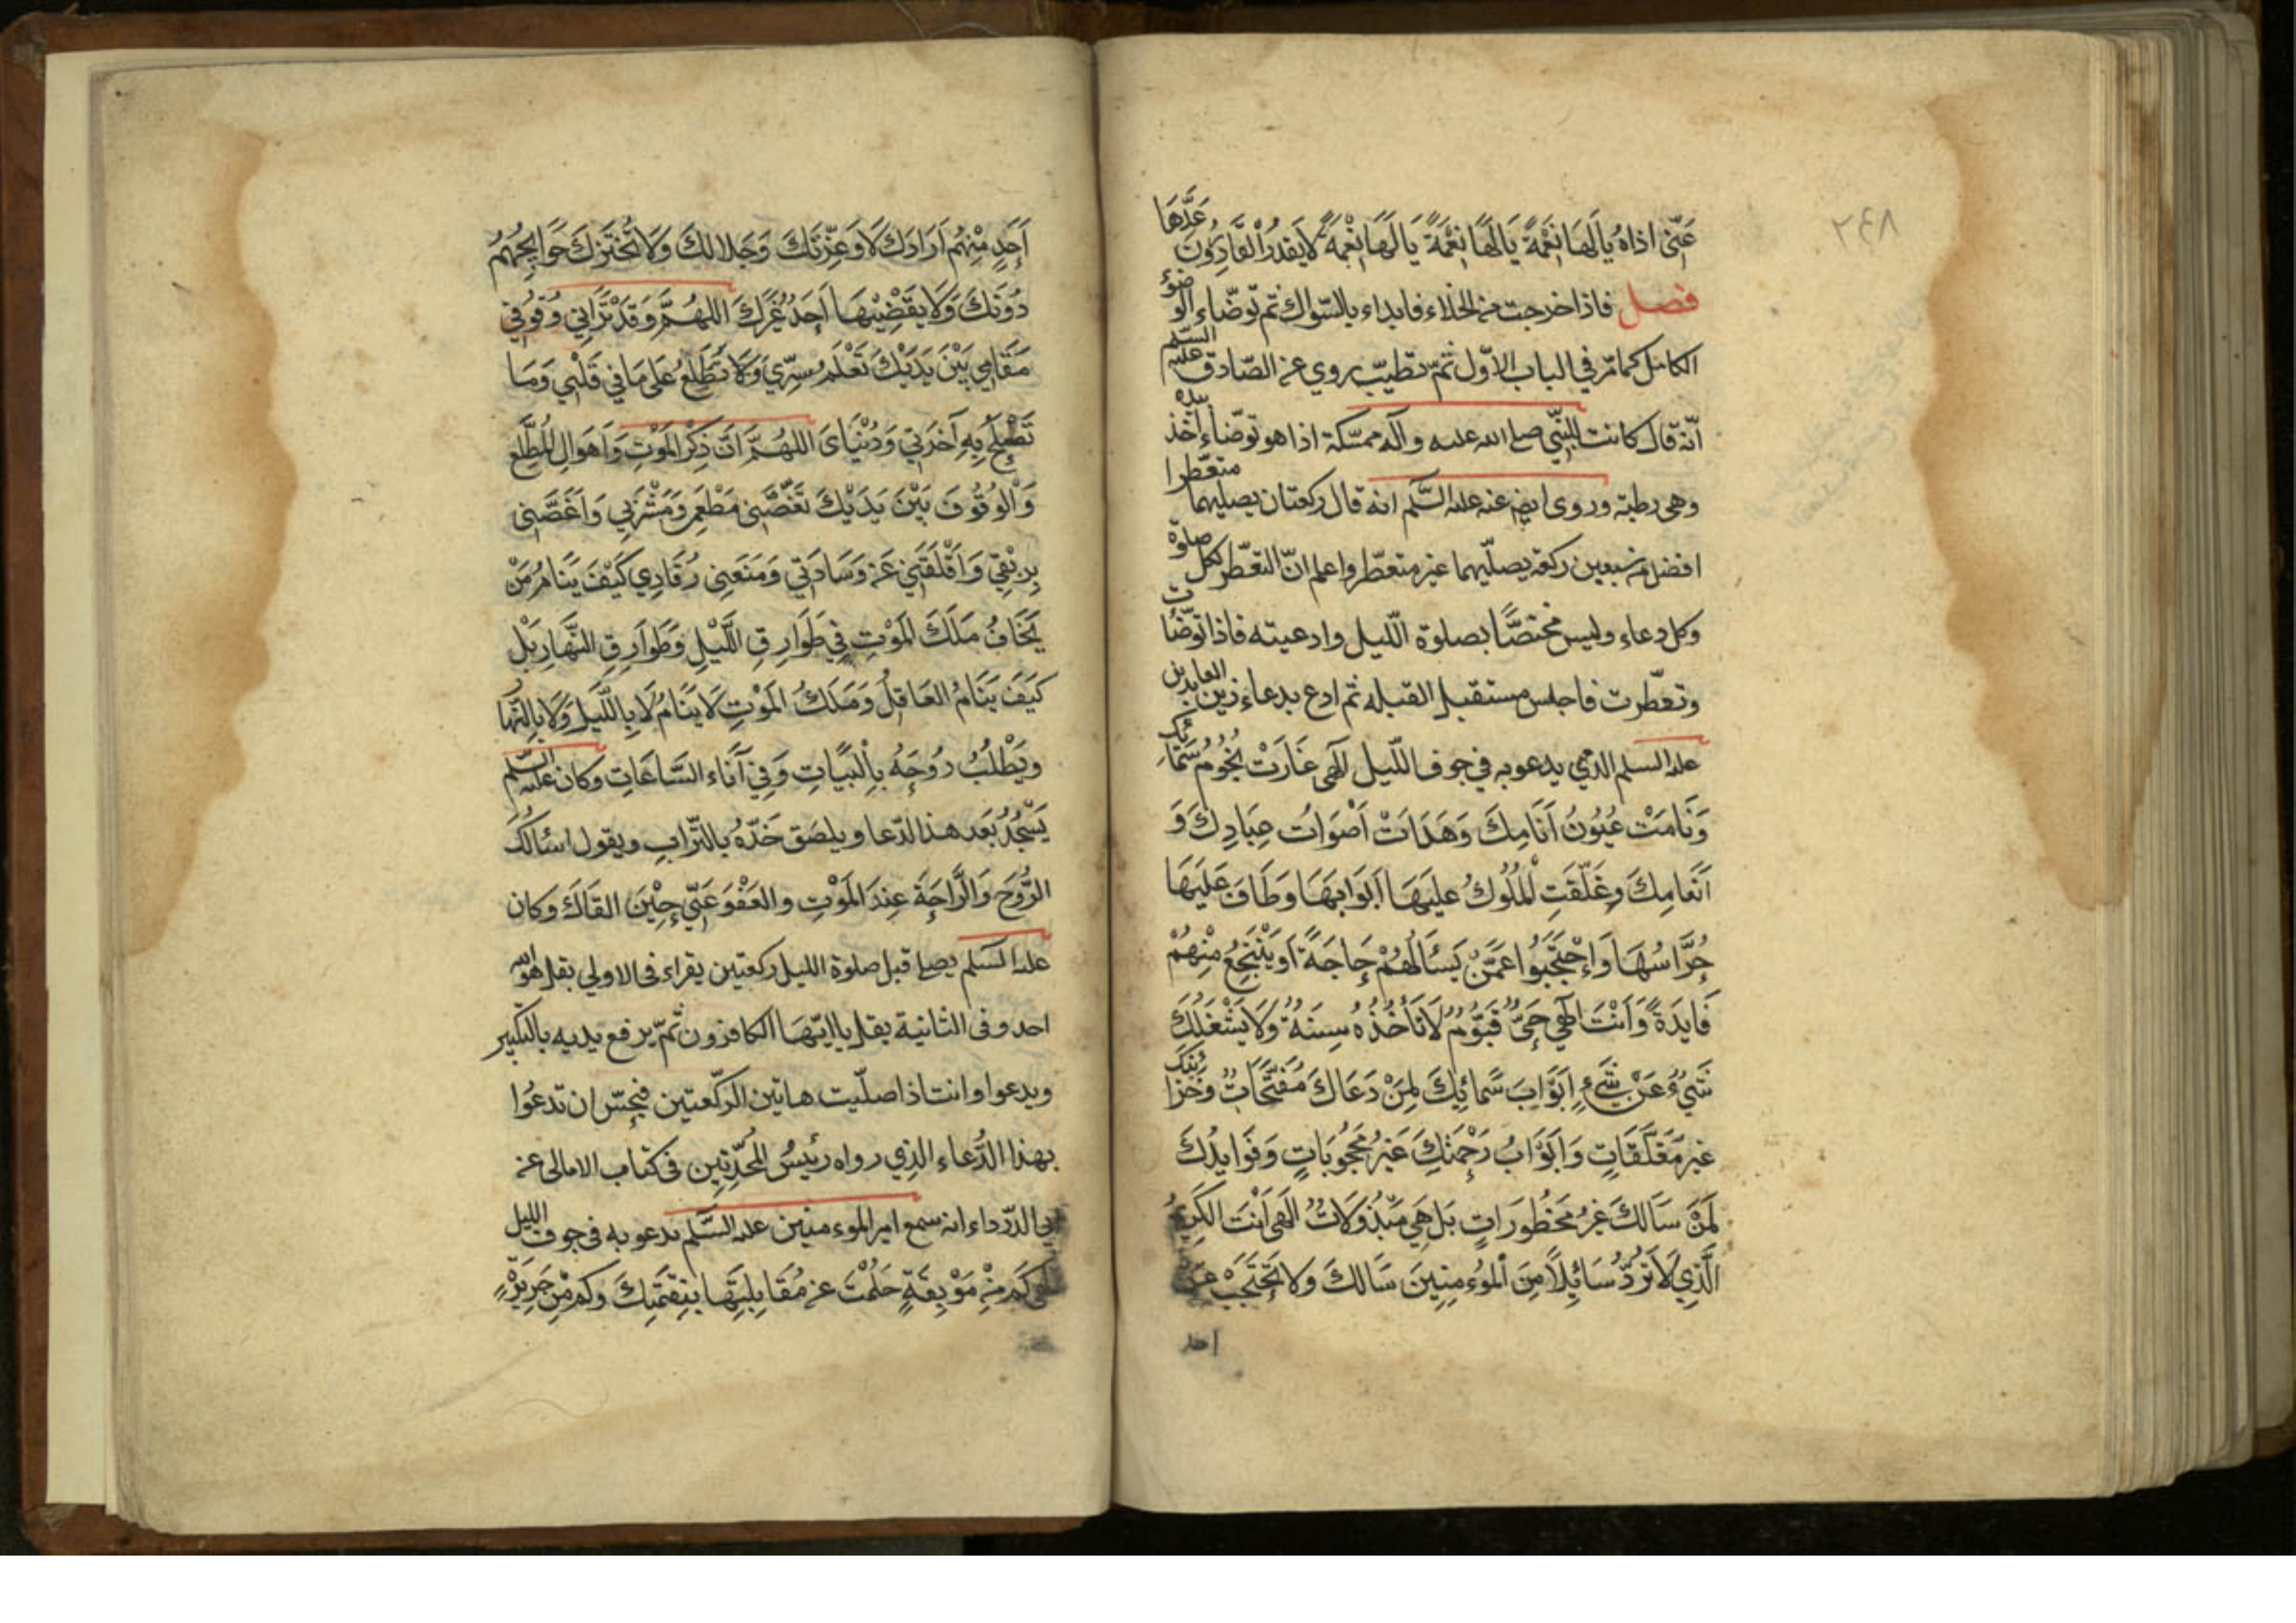 ٢٤٨
عَنّى اذاهُ يالَهَا نِعْمَةً يَا لَهَا نِعْمَةً يَا لَهَا نِعْمَةً لايَقدرُ القَادِرُونَ قَدْرَهَا
فصل فاذا خرجت من الخلاء فابداء بالسّواك ثم توضّاء الوضوء
الكامل كما مرّ في الباب الاوّل ثمّ تطيّب روي عن الصّادق عليه السّلم
انّه قال كانت للنّبي صلى الله عليه وآله ممسّكة اذا هو توضّاء اخذ بيده
وهى رطبة وروى ايضا عنه عليه السَّلم انه قال ركعتان يصليهما متعطّرا
افضل من سبعين ركعة يصلّيهما غير متعطّر واعلم انّ التعطّر لكل صلوة
وكل دعاء وليس مختصًّا بصلوة اللّيل وادعيته فاذا توضّات
وتعطّرت فاجلس مستقبل القبله ثم ادع بدعاء زين العابدين
عليه السلم الذي يدعو به في جوف اللّيل الهى غَارَتْ نُجُومُ سَمَائِكَ
وَنَامَتْ عُيُونُ أَنَامِكَ وَهَدَاتْ أَصْوَاتُ عِبَادِكَ وَ
اَنعَامِكَ وغَلّقَتِ الْمُلُوكُ عليهَا اَبْوَابهَا وَطَافَ عَلَيهَا
حُرَّاسُهَا وَاِحْتَجَبُوا عَمَّنْ يَسْئَالُهُمْ حَاجَةً اَو يَنْتَجِعُ مِنْهُمْ
فَايدَةً وَاَنْتَ الهي حَيٌّ قَيّومٌ لَا تَأْخُذُهُ سِنَةٌ وَلا يَشْغَلُكَ
شَيْءٌ عَنْ شَيْءٍ اَبَوَابَ سَمَائِكَ لِمَنْ دَعَاكَ مُفَتَّحَاتٌ وَخَزَائِنُكَ
غيرَ مُغَلَّقَاتٍ وَاَبوَابُ رَحْمَتِكَ غَيْرُ مَحْجُوبَاتٍ وَفَوَايدُكَ
لِمَنْ سَالَكَ غيرُ مَحْظُورَاتٍ بَل هِيَ مَبْذُولَاتٌ الهى اَنْتَ الكَرِيمُ
الَّذِي لَا تَرُدُّ سَائِلاً مِنَ الْمُوءمِنِينَ سَالكَ وَلا تَحْتَجِبْ عَن
احد
اَحَدٍ مِنْهُم اَرَادَك لا وَعِزّتكَ وَجَلالكَ وَلَا تُخْتَزَل حَوَايجُهُم
دُونَكَ وَلَا يَقْضِيْهَا اَحَدٌ غَيْركَ اللهُمَّ وَقَدْ تَرَانِي وَقُوفي
مَقَامِي بَيْنَ يَدَيْكَ تَعْلَمُ سِرّي وَلا تَطَّلِعُ عَلى مَا في قَلْبي وَمَا
تَصْلِحُ بِهِ آخرَتي وَدُنْيَاىَ اللهُمَّ اَنّ ذِكْرَ المَوْتِ وَاَهوَالِ المُطَّلَع
وَالوقُوفَ بَيْنَ يَدَيْكَ نَغّصَّنى مَطْعَمي وَمَشْرَبي وَاَغَصَّنى
بِرِيْقي وَاَقْلَقَنِي عَنْ وَسَادَتي وَمَنَعَنِى رُقَادِي كَيْفَ يَنَامُ مَنْ
يَخَافُ مَلَكَ المَوْتِ فِي طَوَارِقِ اللَّيْلِ وَطَوَارِقِ النَّهَارِ بَلْ
كَيفَ يَنَامُ العَاقِلُ وَمَلَكُ المَوْتِ لَا يَنَامُ لا بِاللَّيلِ وَلَا بِالنّهَارِ
وَيَطْلُبُ رُوحَهُ بِالْبَيَاتِ وَفِي آنَاءِ السَّاعَاتِ وكان عليه السّلم
يَسْجُدُ بَعَد هذا الدّعا ويلصَق خَدّهُ بالتّرابِ ويقول اسئالكَ
الرَّوحَ وَالرَّاحَةَ عِندَ المَوْتِ والعَفْوَ عَنّي حِيْنَ القَاكَ وكان
عليه السلم يصلى قبل صلوة الليل ركعتين يقراء فى الاولي بقل هو الله
احد وفى الثانية بقل يا ايّهَا الكافرون ثمّ يرفع يديه بالتكبير
ويدعوا وانت اذا صلّيت هاتين الركّعتين فيحسّن ان تدعُوا
بهذا الدُّعاء الذي رواه رئيسُ المُحَدِّثين في كتاب الامالى عن
ابي الدّرداء انه سمع امير الموءمنين عليه السَّلم يدعو به فى جوف الليل
الهى كَم مِنْ مَوْبِقَةٍ حَلُمْتَ عن مُقَابَلَتِهَا بِنِقْمَتِكَ وكم مِّن جَرِيرَةٍ